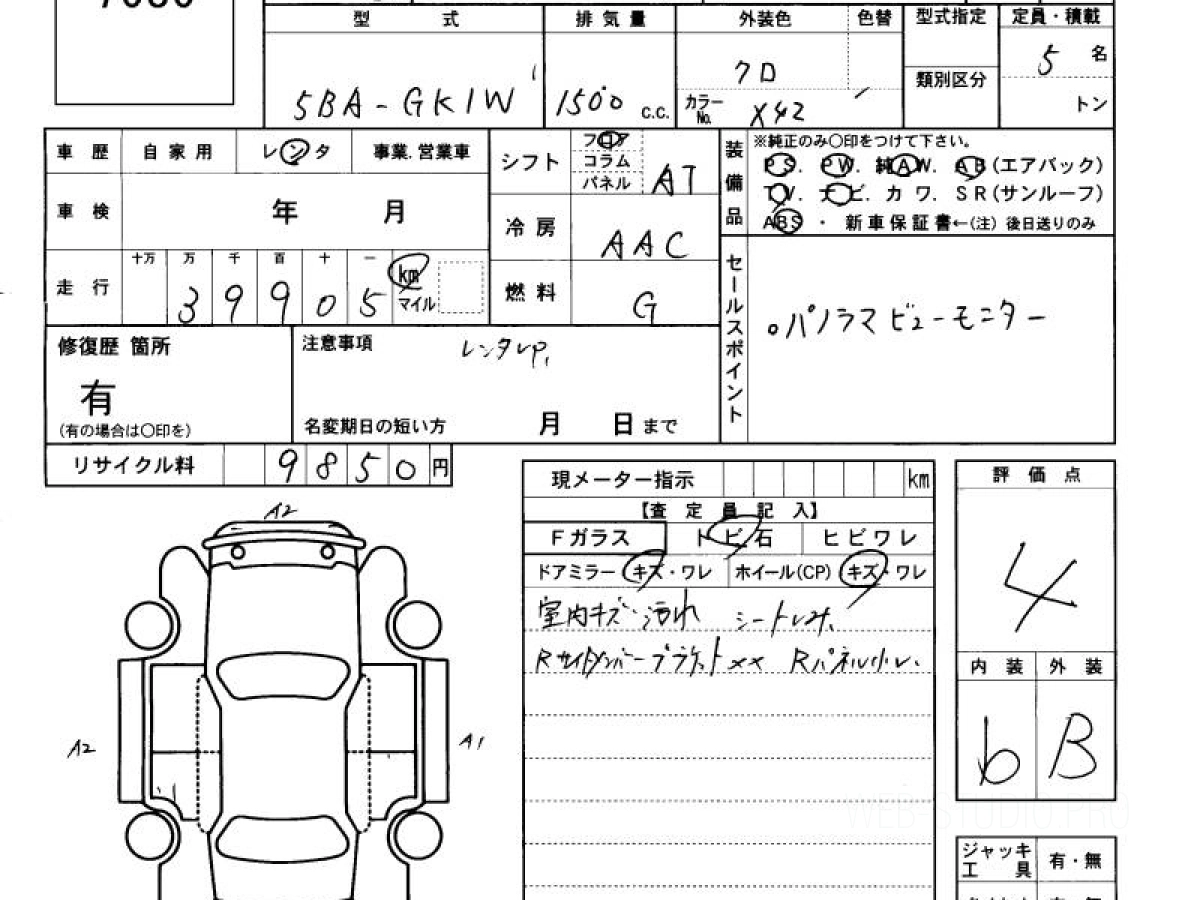 型 式 排気量 外装色 色替 型式指定 定員・積載
5BA-GK1W 1500 c.c. クロ 5 名
カラーNo. X42 類別区分 トン
車歴 自家用 レンタ 事業.営業車
シフト フロア コラム パネル AT
装備品 ※純正のみ〇印をつけて下さい。
PS. PW. 純AW. AB(エアバック)
TV. ナビ. カワ. SR(サンルーフ)
ABS ・ 新車保証書←(注) 後日送りのみ
車検 年 月
冷房 AAC
走行 十万 万 千 百 十 一
3 9 9 0 5 km マイル
燃料 G
セールスポイント
○パノラマビューモニター
修復歴 箇所
有
(有の場合は〇印を)
注意事項 レンタup,
名変期日の短い方 月 日まで
リサイクル料 9850円
現メーター指示 km
【査定員記入】
Fガラス トビ石 ヒビワレ
ドアミラー キズ・ワレ ホイール(CP) キズ・ワレ
室内キズ・汚れ シートしみ、
Rサイドメンバーブラケット×× Rパネル小レ、
評価点
4
内装 外装
b B
A2
A2
A1
ジャッキ 工具 有・無
WEB-STUDIO.PRO